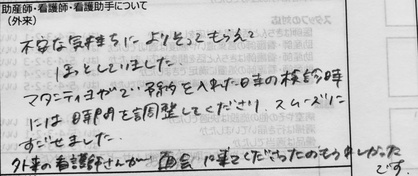 助産師・看護師・看護助手について
(外来)
不安な気持ちによりそってもらえて
ほっとしていました。
マタニティヨガで予約を入れた日の検診時
には時間を調整してくださり、スムーズに
すごせました。
外来の看護師さんが面会に来てくださったのもうれしかった
です。